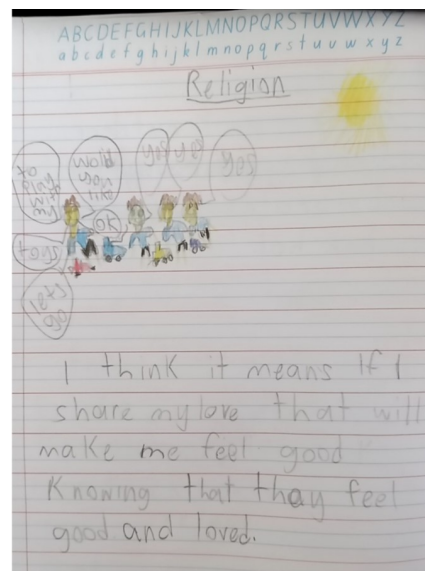 ABCDEFGHIJKLMNOPQRSTUVWXYZ
abcdefghijklmnopqrstuvwxyz
Religion
to
play
with
me
would
you
like
to
yes
yes
yes
shot
let's
go
I think it means If I
share my love that will
make me feel good
Knowing that thay feel
good and loved.